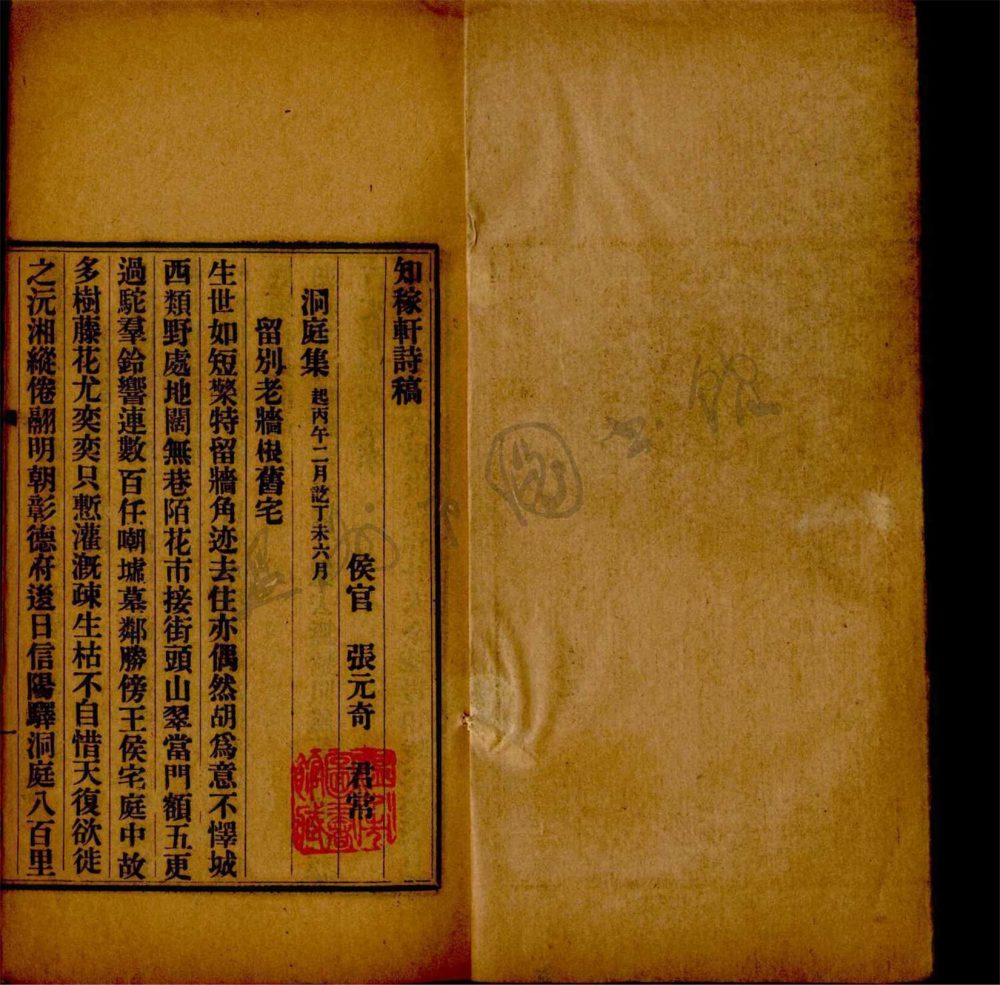 知稼軒詩稿
侯官 張元奇 君常
洞庭集 起丙午二月訖丁未六月
留別老牆根舊宅
生世如短檠特留牆角迹去住亦偶然胡爲意不懌城
西類野處地闊無巷陌花市接街頭山翠當門額五更
過駝羣鈴響連數百任嘲墟墓鄰勝傍王侯宅庭中故
多樹藤花尤奕奕只慙灌漑疎生枯不自惜天復欲徙
之沅湘縱倦翮明朝彰德府選日信陽驛洞庭八百里